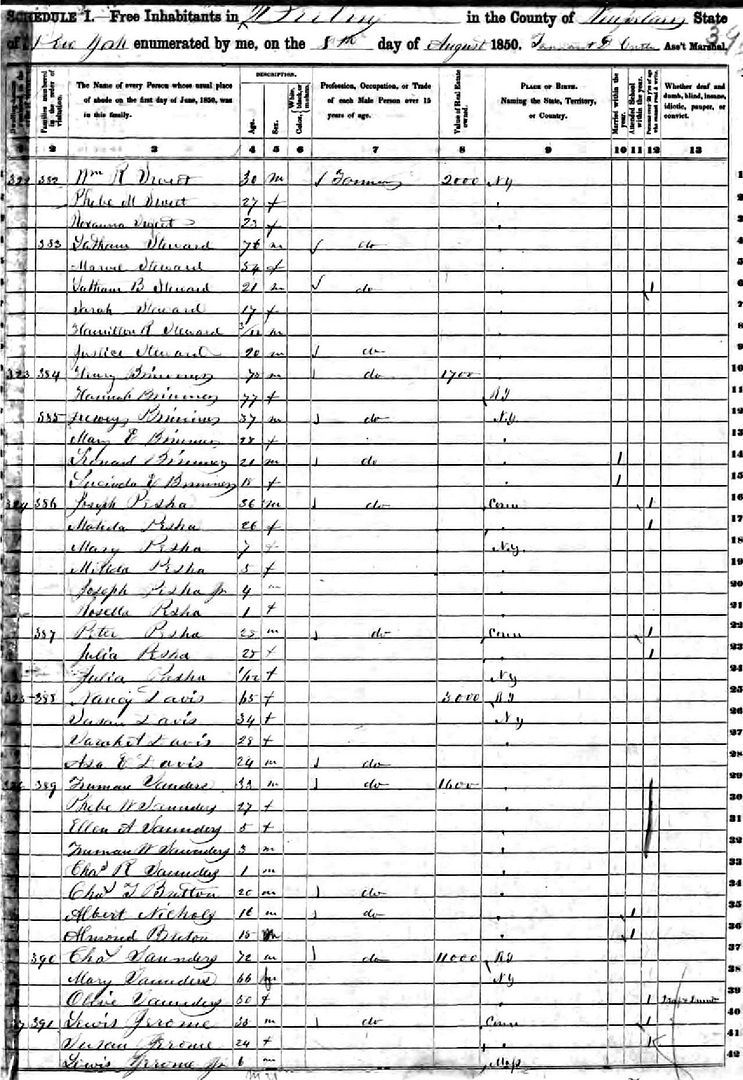 SCHEDULE I. Free Inhabitants in in the County of State
of New York enumerated by me, on the 8th day of August 1850. Ass't Marshal.
Dwelling-houses numbered in the order of visitation.
Families numbered in the order of visitation.
The Name of every Person whose usual place of abode on the first day of June, 1850, was in this family.
DESCRIPTION.
Age.
Sex.
White, black, or mulatto.
Color,
Profession, Occupation, or Trade of each Male Person over 15 years of age.
Value of Real Estate owned.
PLACE OF BIRTH. Naming the State, Territory, or Country.
Married within the year.
Attended School within the year.
Persons over 20 y'rs of age who cannot read & write.
Whether deaf and dumb, blind, insane, idiotic, pauper, or convict.
1 2 3 4 5 6 7 8 9 10 11 12 13
382 Wm R 30 m Farmer 2000 NY 1
Phebe M 27 f 2
23 f 3
383 Latham Steward m do 4
Steward 54 f 5
Latham B Steward 21 m do 1 6
Sarah Steward 17 f 7
Hamilton R Steward 3/12 m 8
Justice Steward 20 m do 9
323 384 m do 1700 10
Hannah 77 f RI 11
385 37 m do NY 12
Mary E 28 f 13
Leonard 21 m do 1 14
Lucinda 18 f 1 15
324 386 Joseph Pesha 36 m do Conn 1 16
Matilda Pesha 26 f 1 17
Mary Pesha 7 f NY. 18
Milda Pesha 5 f 19
Joseph Pesha Jr 4 m 20
Rosella Pesha 1 f 21
387 Peter Pesha 25 m do Conn 1 22
Julia Pesha 25 f 1 23
Julia Pesha /12 f NY 24
325 388 Nancy Davis 65 f 3000 RI 25
Susan Davis 34 f NY 26
Sarah A Davis 28 f 27
Asa E Davis 24 m do 28
326 389 Truman Saunders 33 m do 1600 29
Phebe W Saunders 27 f 30
Ellen A Saunders 5 f 31
Truman W Saunders 3 m 32
Chas R Saunders 1 m 33
Chas T Britton 20 m do 34
Albert Nichols 16 m do 1 35
Almond 15 m 1 36
390 Chas Saunders 72 m do 11000 RI 37
Mary Saunders 66 f NY 38
Olive Saunders 30 f 1 39
391 Lewis Jerome 35 m do Conn 1 40
Susan Jerome 24 f 1 41
Lewis Jerome Jr 6 m 42